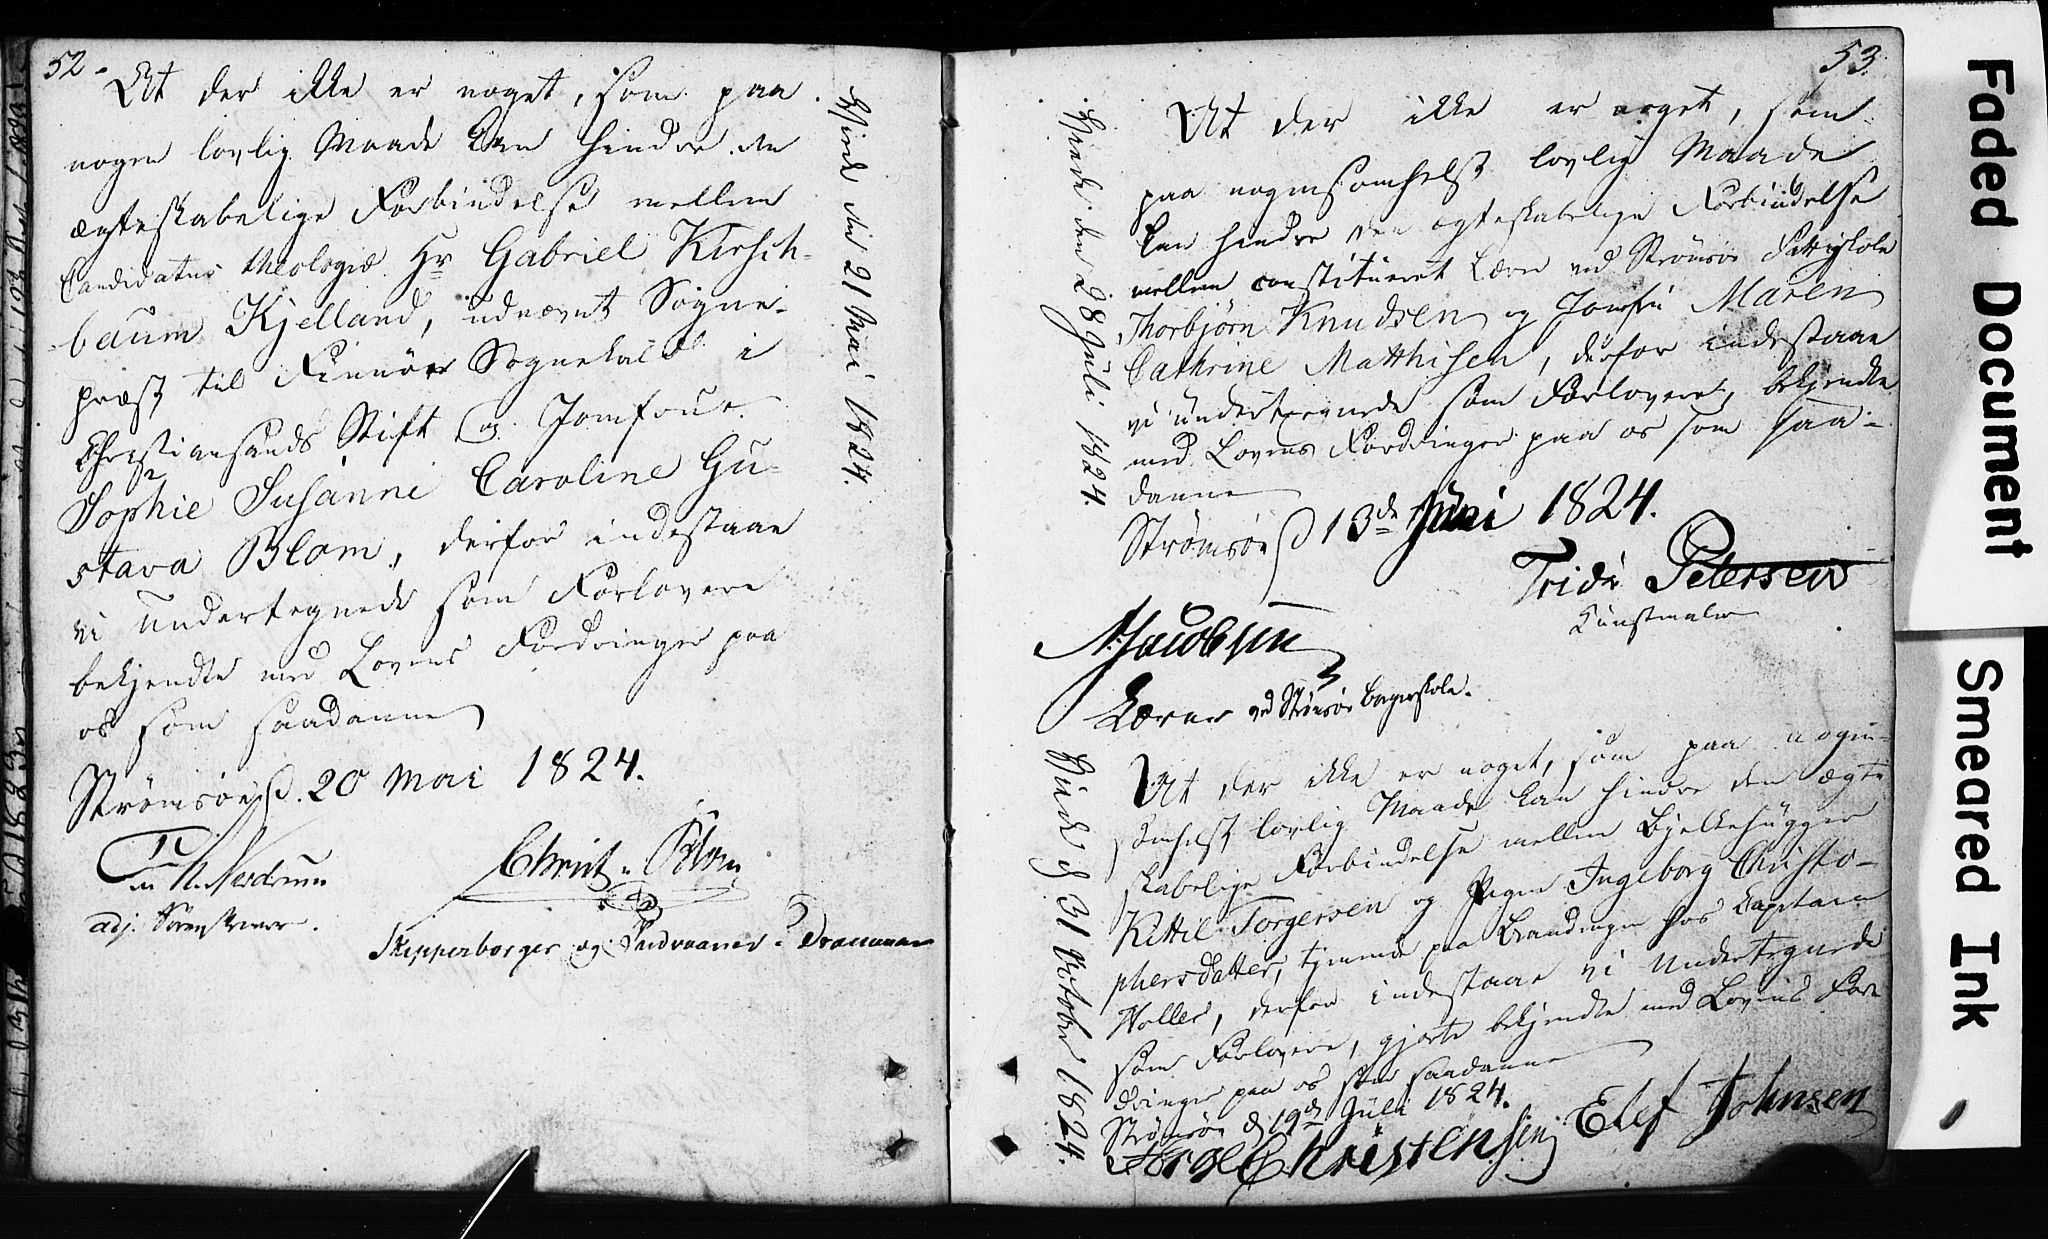 52.
At der ikke er noget, som paa
nogen lovlig Maade kan hindre den
ægteskabelige Forbindelse mellem
Candidatus theologiæ Hr Gabriel Kirsch-
baum Kjelland, udnævnt Sogne-
præst til Finnöe Sognekald i
Christiansands Stift og Jomfrue
Sophie Susanne Caroline Gu-
stava Blom, derfor indestaae
vi undertegnede som Forlovere
bekjendte med Lovens Fordringer paa
os som saadanne
Strømsøe d. 20 Mai 1824.
N. Nerdrum
Christ. Blom
adj.
Skipperborger og i Drammen
Viede den 21 Mai 1824.
53.
At der ikke er noget, som
paa nogensomhelst lovlig Maade
kan hindre den ægteskabelige Forbindelse
mellem constitueret Lærer ved Strømsøe Fattigskole
Thorbjørn Knudsen og Jomfru Maren
Cathrine Matthisen, derfor indestaae
vi undertegnede som Forlovere, bekjendte
med Lovens Fordringer paa os som saa-
danne
Strømsøe d 13de Juni 1824.
Petersen
Kunstmaler
Jacobsen
Lærer ved Strømsøe Borgerskole.
Viede den 28 Juli 1824.
At der ikke er noget, som paa nogen-
somhelst lovlig Maade kan hindre den ægte-
skabelige Forbindelse mellem Bjelkehugger
Kittil Torgersen og Pigen Ingeborg Christo-
phersdatter, tjenende paa Brandengen hos Capitain
Holler, derfor indestaae vi Undertegnede
som Forlovere, gjorte bekjendte med Lovens For-
dringer paa os som saadanne
Strømsøe d 19de Juli 1824.
Elef Johnsen
Christensen
Viede d 31 October 1824.
Faded Document
Smeared Ink